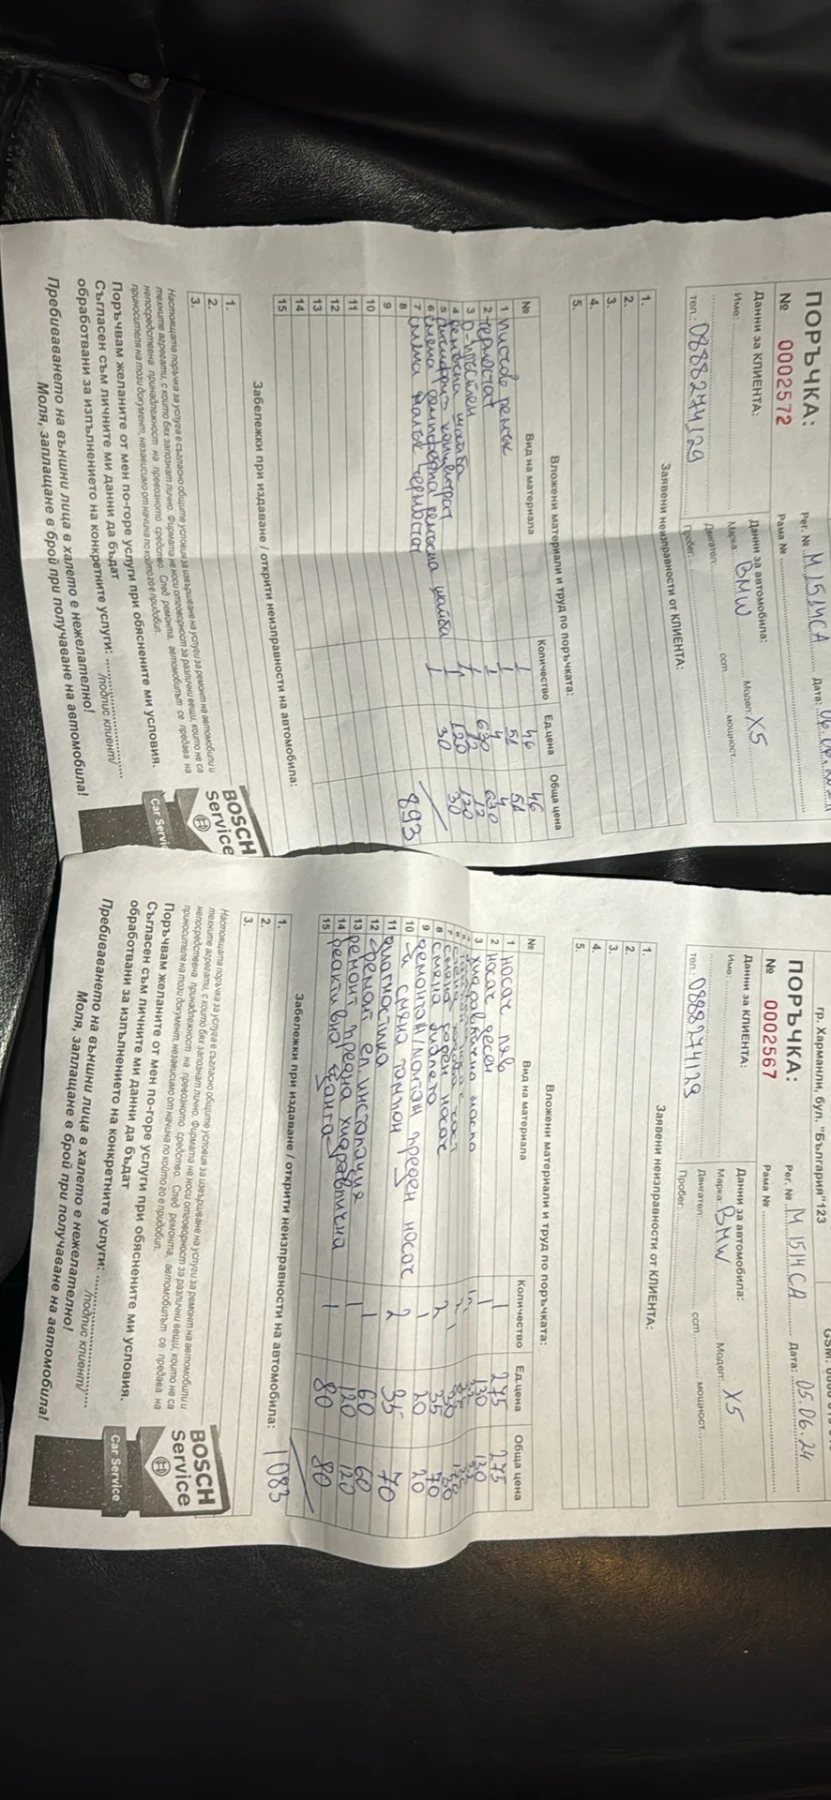 ПОРЪЧКА:
№ 0002572
Рег. № М1514СА Дата:
Рама №
Данни за КЛИЕНТА:
Данни за автомобила:
Име:
Марка: BMW Модел: X5
Двигател: сст. мощност.
тел.: 0888274129
Пробег:
Заявени неизправности от КЛИЕНТА:
1.
2.
3.
4.
5.
Вложени материали и труд по поръчката:
№ Вид на материала Количество Ед.цена Обща цена
1 пистов ремък 1 46 46
2 термостат 1 51 51
3 о-пръстен 1 4 4
4 ремъчна шайба 1 630 630
5 антифриз концентрат 1 12 12
6 смяна демпферна ремъчна шайба 1 120 120
7 смяна малък термостат 1 30 30
8 893
9
10
11
12
13
14
15
Забележки при издаване / открити неизправности на автомобила:
1.
2.
3.
Настоящата поръчка за услуга е съгласно общите условия за извършване на услуги за ремонт на автомобили и
техните агрегати, с които бях запознат лично. Фирмата не носи отговорност за различни вещи, които не са
непосредствена принадлежност на превозното средство. След ремонта, автомобилът се предава на
приносителя на този документ, независимо от начина по който го е придобил.
Поръчвам желаните от мен по-горе услуги при обяснените ми условия.
Съгласен съм личните ми данни да бъдат
обработвани за изпълнението на конкретните услуги:
/подпис клиент/
Пребиваването на външни лица в халето е нежелателно!
Моля, заплащане в брой при получаване на автомобила!
BOSCH
Service
Car Service
гр. Харманли, бул. "България"123
ПОРЪЧКА:
№ 0002567
Рег. № М1514СА Дата: 05.06.24
Рама №
Данни за КЛИЕНТА:
Данни за автомобила:
Име:
Марка: BMW Модел: X5
Двигател: сст. мощност.
тел.: 0888274129
Пробег:
Заявени неизправности от КЛИЕНТА:
1.
2.
3.
4.
5.
Вложени материали и труд по поръчката:
№ Вид на материала Количество Ед.цена Обща цена
1 носач ляв 1 275 275
2 носач десен 1 130 130
3 хидравлично масло
8 смяна 2 35 70
9 демонтаж/монтаж преден носач 1 20 20
10 и смяна тампон 2 35 70
11 диагностика
12 ремонт ел. инсталация 1 60 60
13 ремонт предна хидравлична 1 120 120
14 реактивна щанга 1 80 80
15
1083
Забележки при издаване / открити неизправности на автомобила:
1.
2.
3.
Настоящата поръчка за услуга е съгласно общите условия за извършване на услуги за ремонт на автомобили и
техните агрегати, с които бях запознат лично. Фирмата не носи отговорност за различни вещи, които не са
непосредствена принадлежност на превозното средство. След ремонта, автомобилът се предава на
приносителя на този документ, независимо от начина по който го е придобил.
Поръчвам желаните от мен по-горе услуги при обяснените ми условия.
Съгласен съм личните ми данни да бъдат
обработвани за изпълнението на конкретните услуги:
/подпис клиент/
Пребиваването на външни лица в халето е нежелателно!
Моля, заплащане в брой при получаване на автомобила!
BOSCH
Service
Car Service